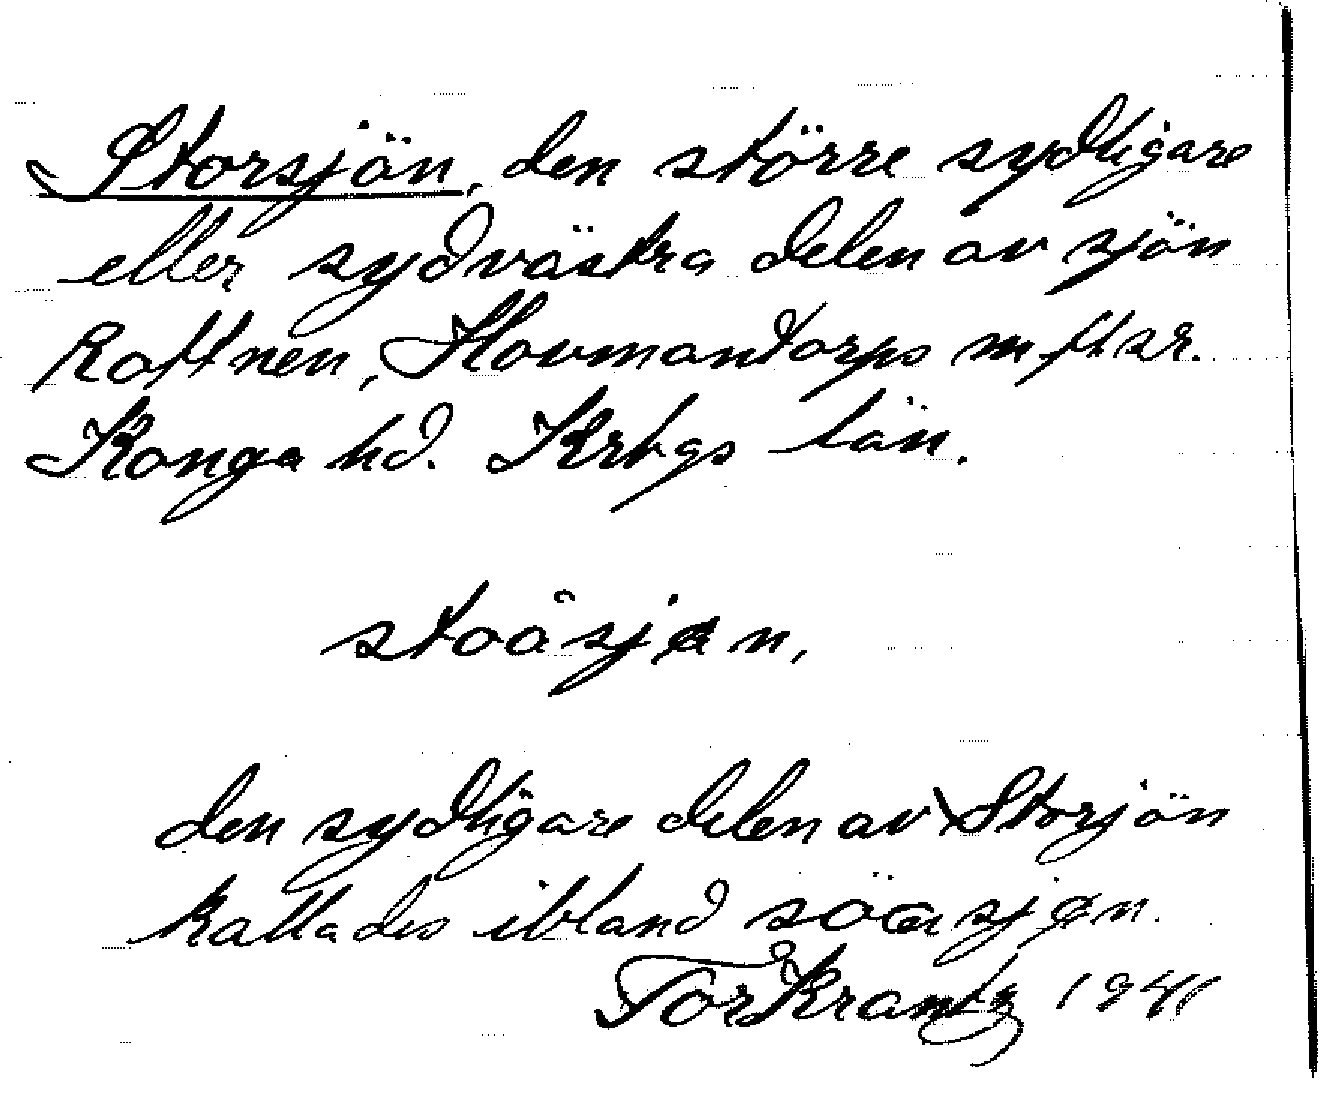 Storsjön, den större sydligare
eller sydvästra delen av sjön
Rottnen, Hovmantorps m fl sr.
Konga hd. Krbgs län.
stoåsjøn,
den sydligare delen av Storjön
kallades ibland sjøn.
Tor Krantz 1941